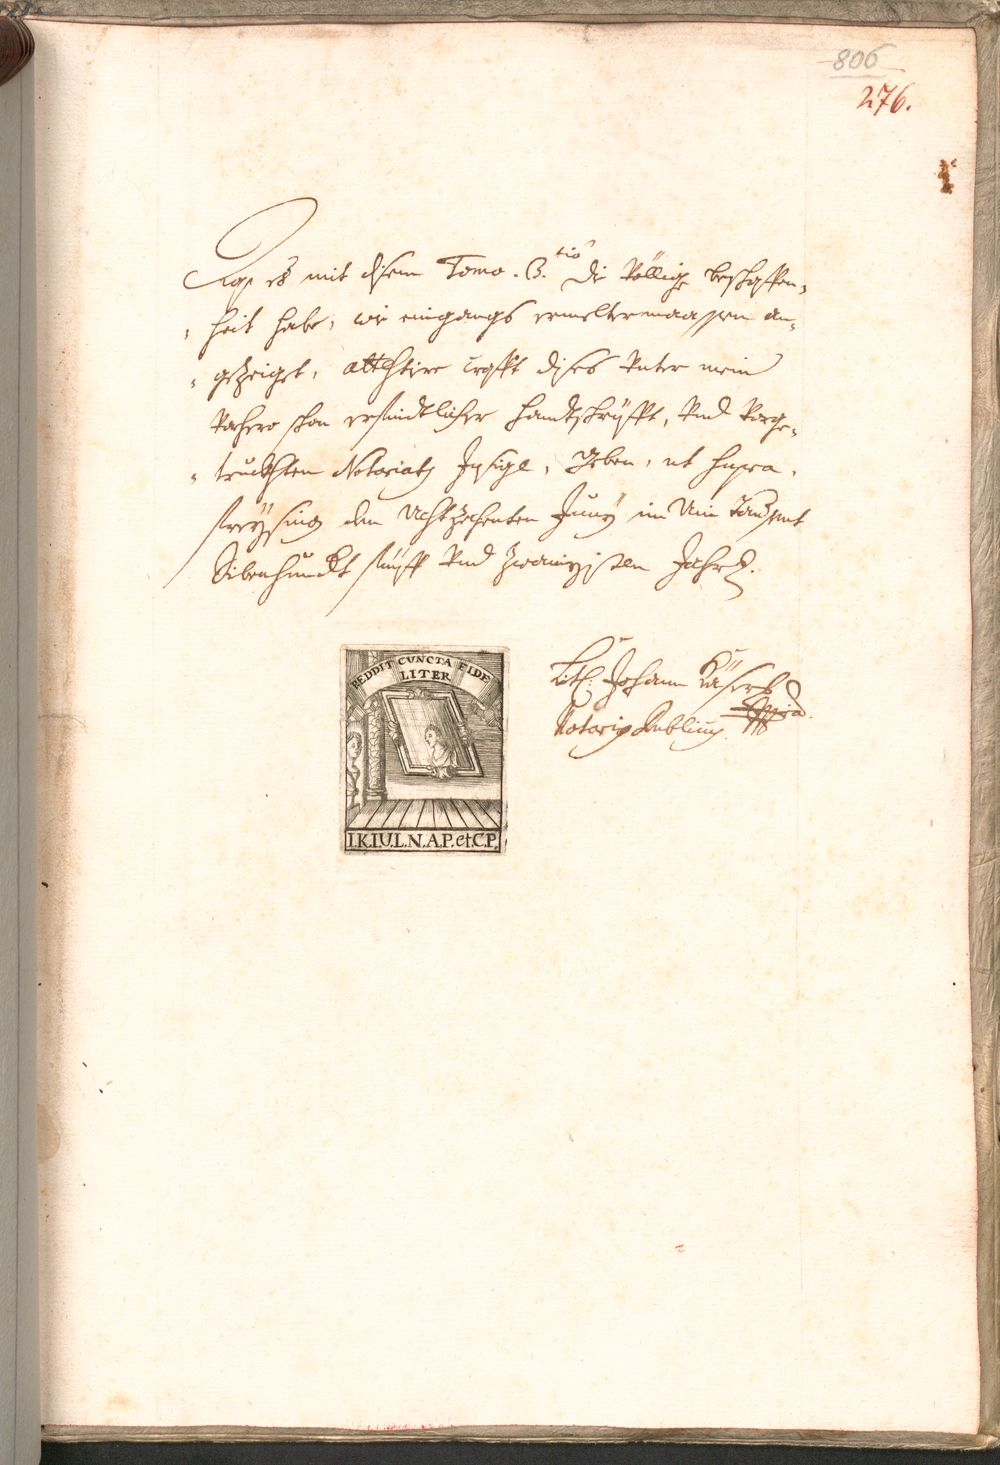 806
276.
Das es mit disem Tomo. 3.tio die völlige beschaffen„
„heit habe, wie eingangs ermeltermaassen an„
„gezeiget, attestire crafft dises unter mein
vorhero schon ersindtlicher handtschrüfft, und vorge„
„truckhten Notariats Insigl, Geben, ut supra,
Freÿsing den Achtzechenten Junÿ im Ain Tausent
Sibenhundert fünff und zwainzigisten Jahrs.
REDDIT CVNCTA FIDE
LITER
I.K.I.U.L.N.A.P. et.C.P.
Lit: Johann Käserl
Notarius Publicus. mppria.